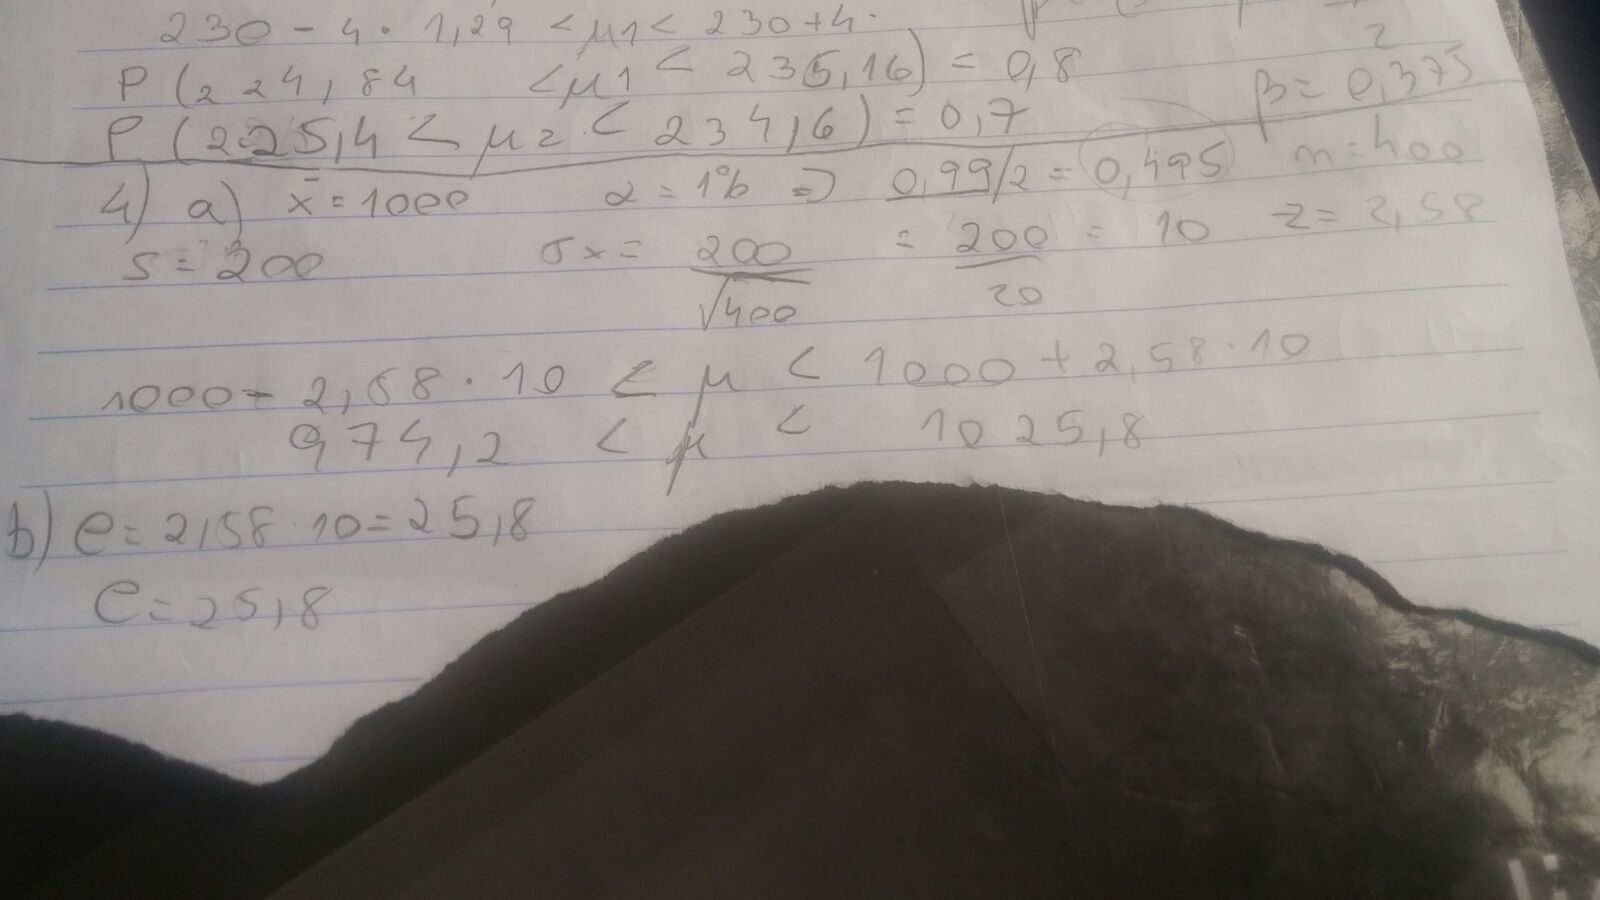 230 - 4 · 1,29 < μ1 < 230 + 4 ·
P (224,84 < μ1 < 235,16) = 0,8
2
β = 0,375
P (225,4 < μ2 < 234,6) = 0,7
4) a) x̄ = 1000 α = 1% => 0,99/2 = 0,495 n = 400
s = 200 σx = 200/√400 = 200/20 = 10 z = 2,58
1000 - 2,58 · 10 < μ < 1000 + 2,58 · 10
974,2 < μ < 1025,8
b) e = 2,58 · 10 = 25,8
e = 25,8